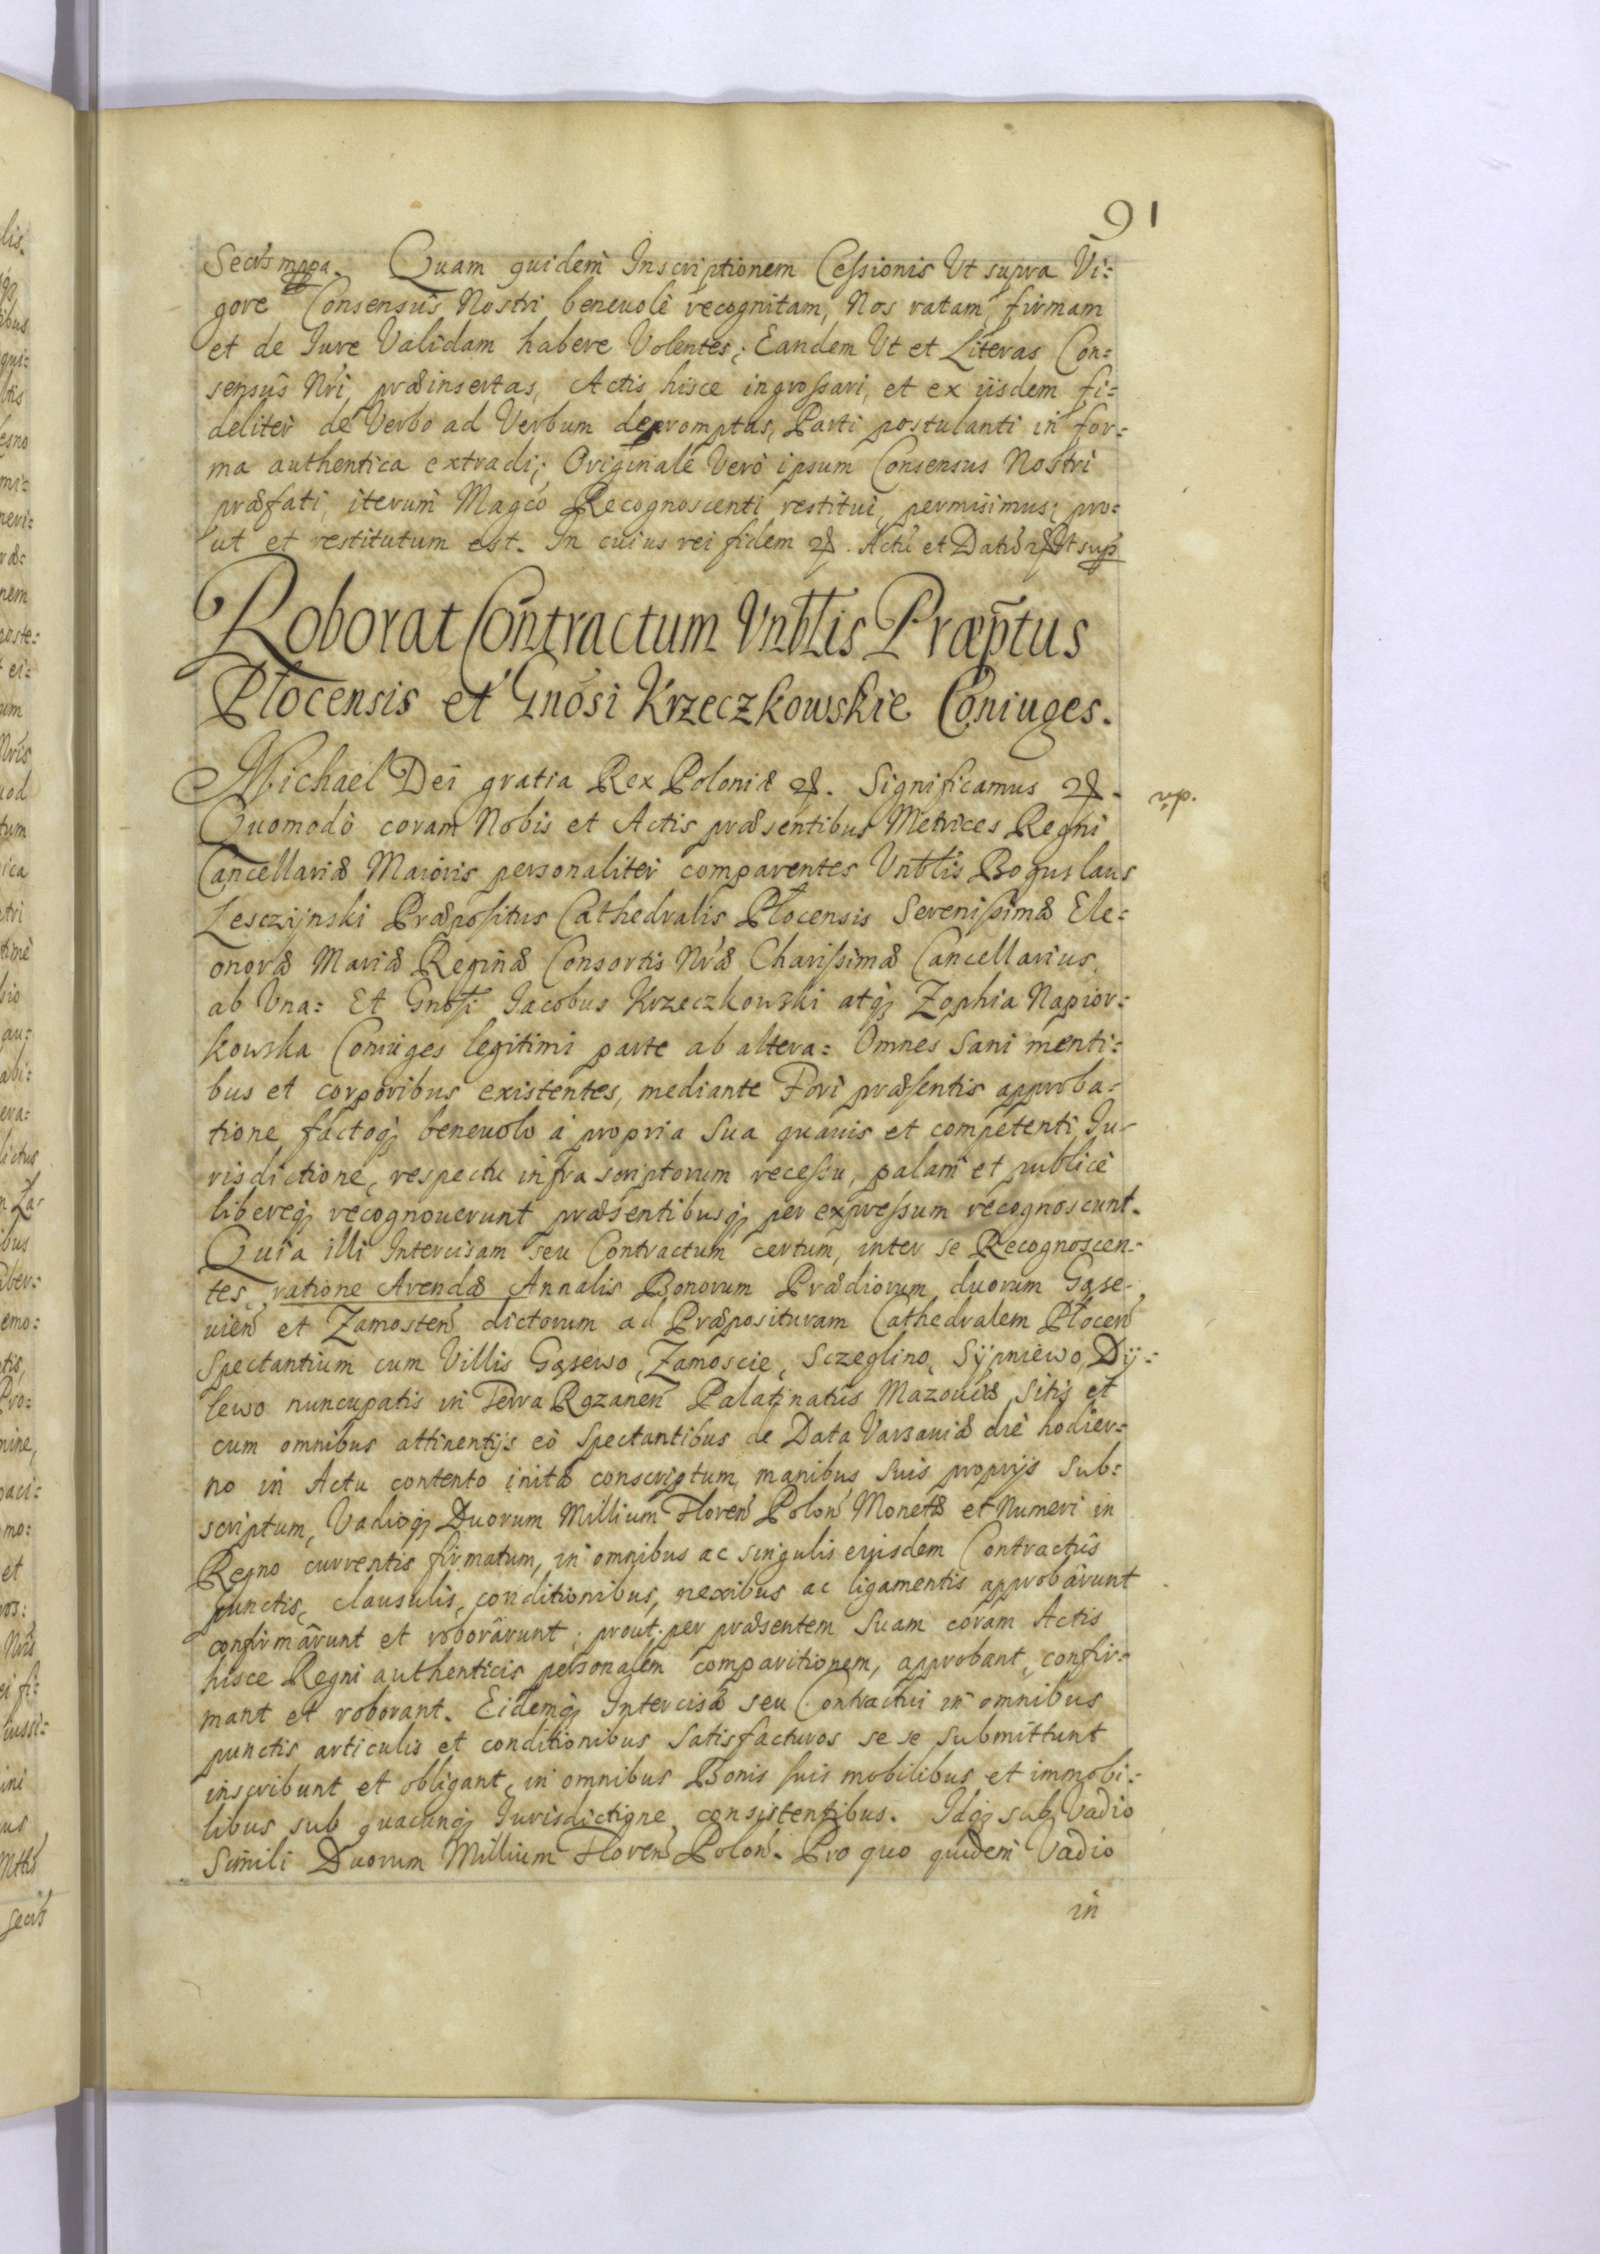 91
Secrts mppa. Quam quidem Inscriptionem Cessionis Ut supra Vi=
gore Consensûs Nostri beneuolè recognitam, Nos ratam firmam
et de Iure Validam habere Volentes; Eandem Ut et Literas Con=
sensûs Nri præinsertas, Actis hisce ingrossari, et ex iisdem fi=
deliter de Verbo ad Verbum depromptas, Parti postulanti in for=
ma authentica extradi; Originale Verò ipsum Consensus Nostri
præfati, iterum Magco Recognoscenti restitui, permisimus; pro=
ut et restitutum est. In cuius rei fidem &. Actũ et Datũ & Ut sup
Roborat Contractum Vnblis Præptus
Płocensis et Gnosi Krzeczkowskie Coniuges.
Michael Dei gratia Rex Poloniæ &. Significamus &.
vp.
Quomodò coram Nobis et Actis præsentibus Metrices Regni
Cancellariæ Maioris personaliter comparentes Vnblis Boguslaus
Lesczijnski Præpositus Cathedralis Płocensis Serenissimæ Ele=
onoræ Mariæ Reginæ Consortis Nræ Charissimæ Cancellarius,
ab Una= Et Gnosi Iacobus Krzeczkowski atq Zophia Napior=
kowska Coniuges legitimi parte ab altera= Omnes sani menti=
bus et corporibus existentes, mediante Fori præsentis approba=
tione factoq beneuolo à propria sua quauis et competenti Iu=
risdictione, respectu infra scriptorum recessu, palam et publicè
libereq recognouerunt præsentibusq per expressum recognoscunt.
Quia illi Intercisam seu Contractum certum, inter se Recognoscen=
tes, ratione Arendæ Annalis Bonorum Prædiorum duorum Gąse=
uien et Zamosten dictorum ad Præposituram Cathedralem Płocen
spectantium cum Villis Gąsewo, Zamoscie, Sczeglino, Sijpniewo, Dij=
lewo nuncupatis in Terra Rozanen Palatinatus Mazouiæ sitis et
cum omnibus attinentijs eò spectantibus de Data Varsauiæ die hodier=
no in Actu contento initâ conscriptum, manibus suis proprijs sub=
scriptum, Vadioq Duorum Millium Floren Polon Monetæ et Numeri in
Regno currentis firmatum, in omnibus ac singulis eiusdem Contractûs
punctis, clausulis, conditionibus, nexibus ac ligamentis approbârunt
confirmârunt et roborârunt; prout per præsentem suam coram Actis
hisce Regni authenticis personalem comparitionem, approbant, confir=
mant et roborant. Eidemq Intercisæ seu Contractui in omnibus
punctis articulis et conditionibus satisfacturos se se submittunt
inscribunt et obligant, in omnibus Bonis suis mobilibus et immobi=
libus sub quacunq Iurisdictione consistentibus. Idq sub Vadio
Simili Duorum Millium Floren Polon. Pro quo quidem Vadio
in